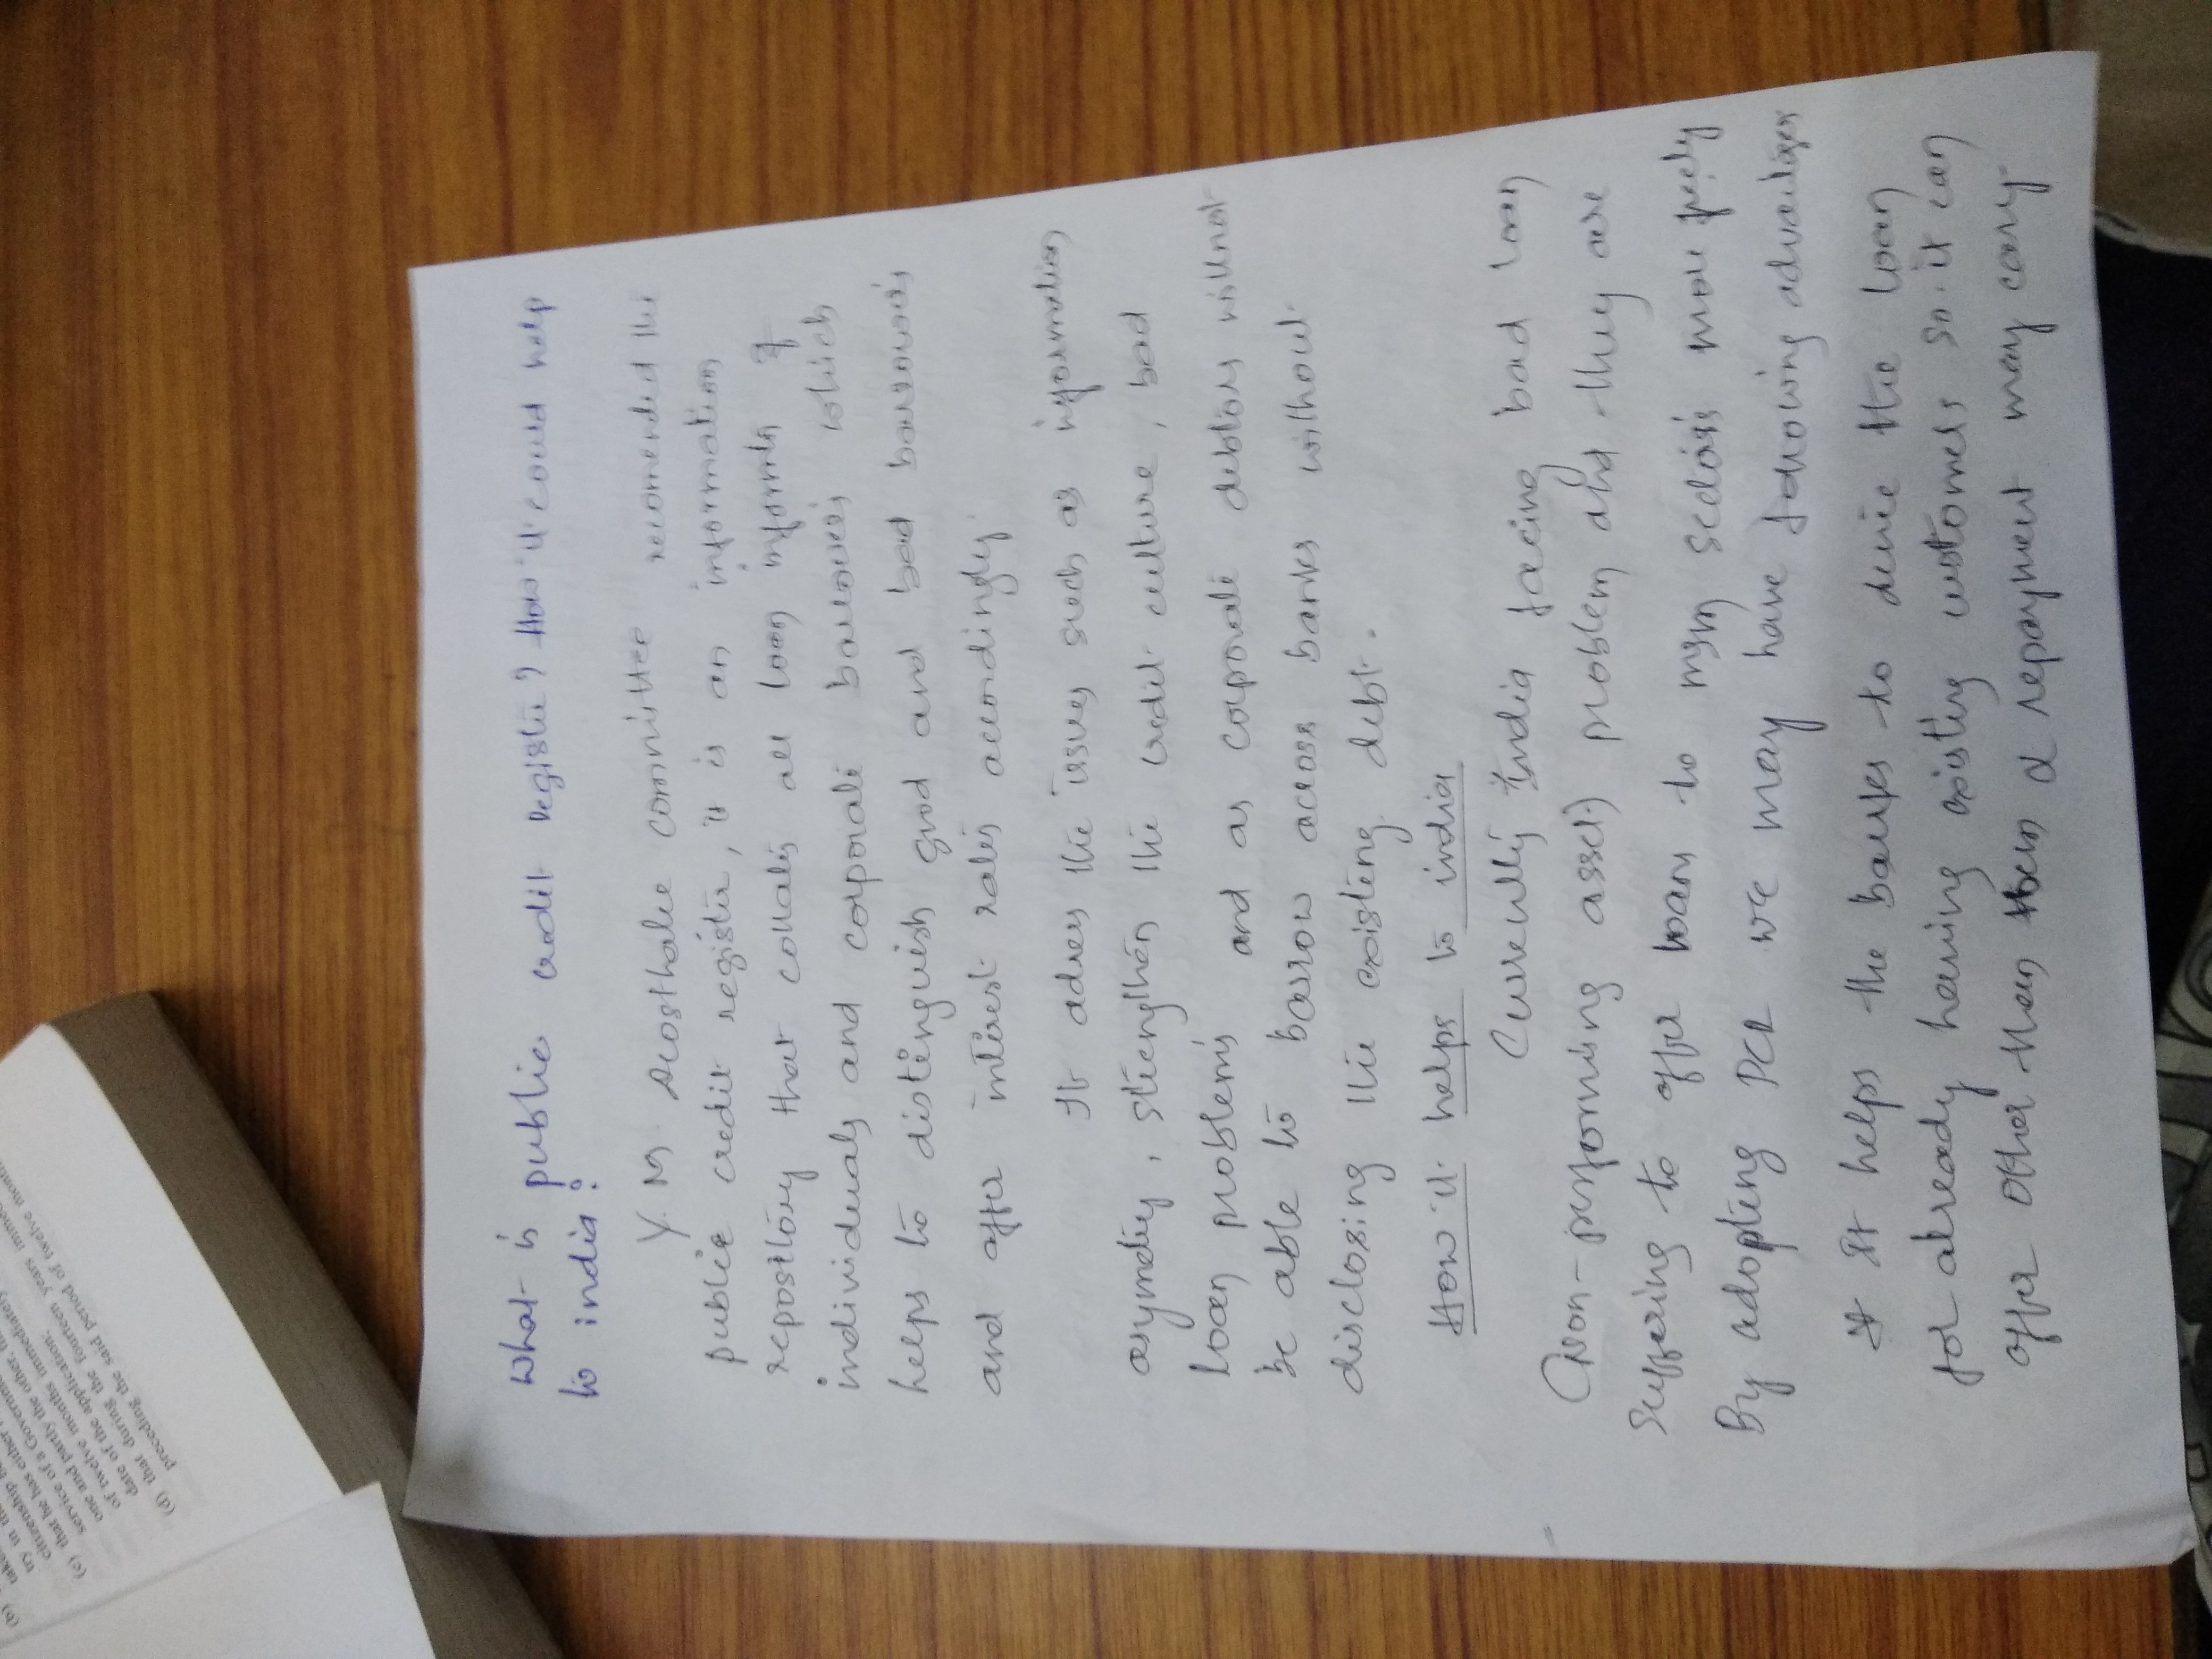 What is public credit register? How it could help
to india?
Y. M. Deosthalee committee recomended the
public credit register, it is an information
repository that collates all loan informts of
individuals and corporate borrowers which
helps to distinguish good and bad borrowers
and offer interest rates accordingly
It adress the issues such as information
asymmetry, strengthen the credit culture, bad
loan problems and as corporate debtors will not
be able to borrow across banks without
disclosing the existing debt.
How it helps to india
Currently India facing bad loan
(non-performing assets) problem and they are
suffering to offer loans to msm sectors more freely
By adopting PCR we may have following advantages
It helps the banks to denie the loan
for already having existing customers so it can
offer other then a repayment may carry
(b)
take
try in the
citizenship
(c) that he has either
service of a Government
one and partly the other
of twelve months immediately
date of the application;
(d) that during the fourteen years
preceding the said period of twelve months